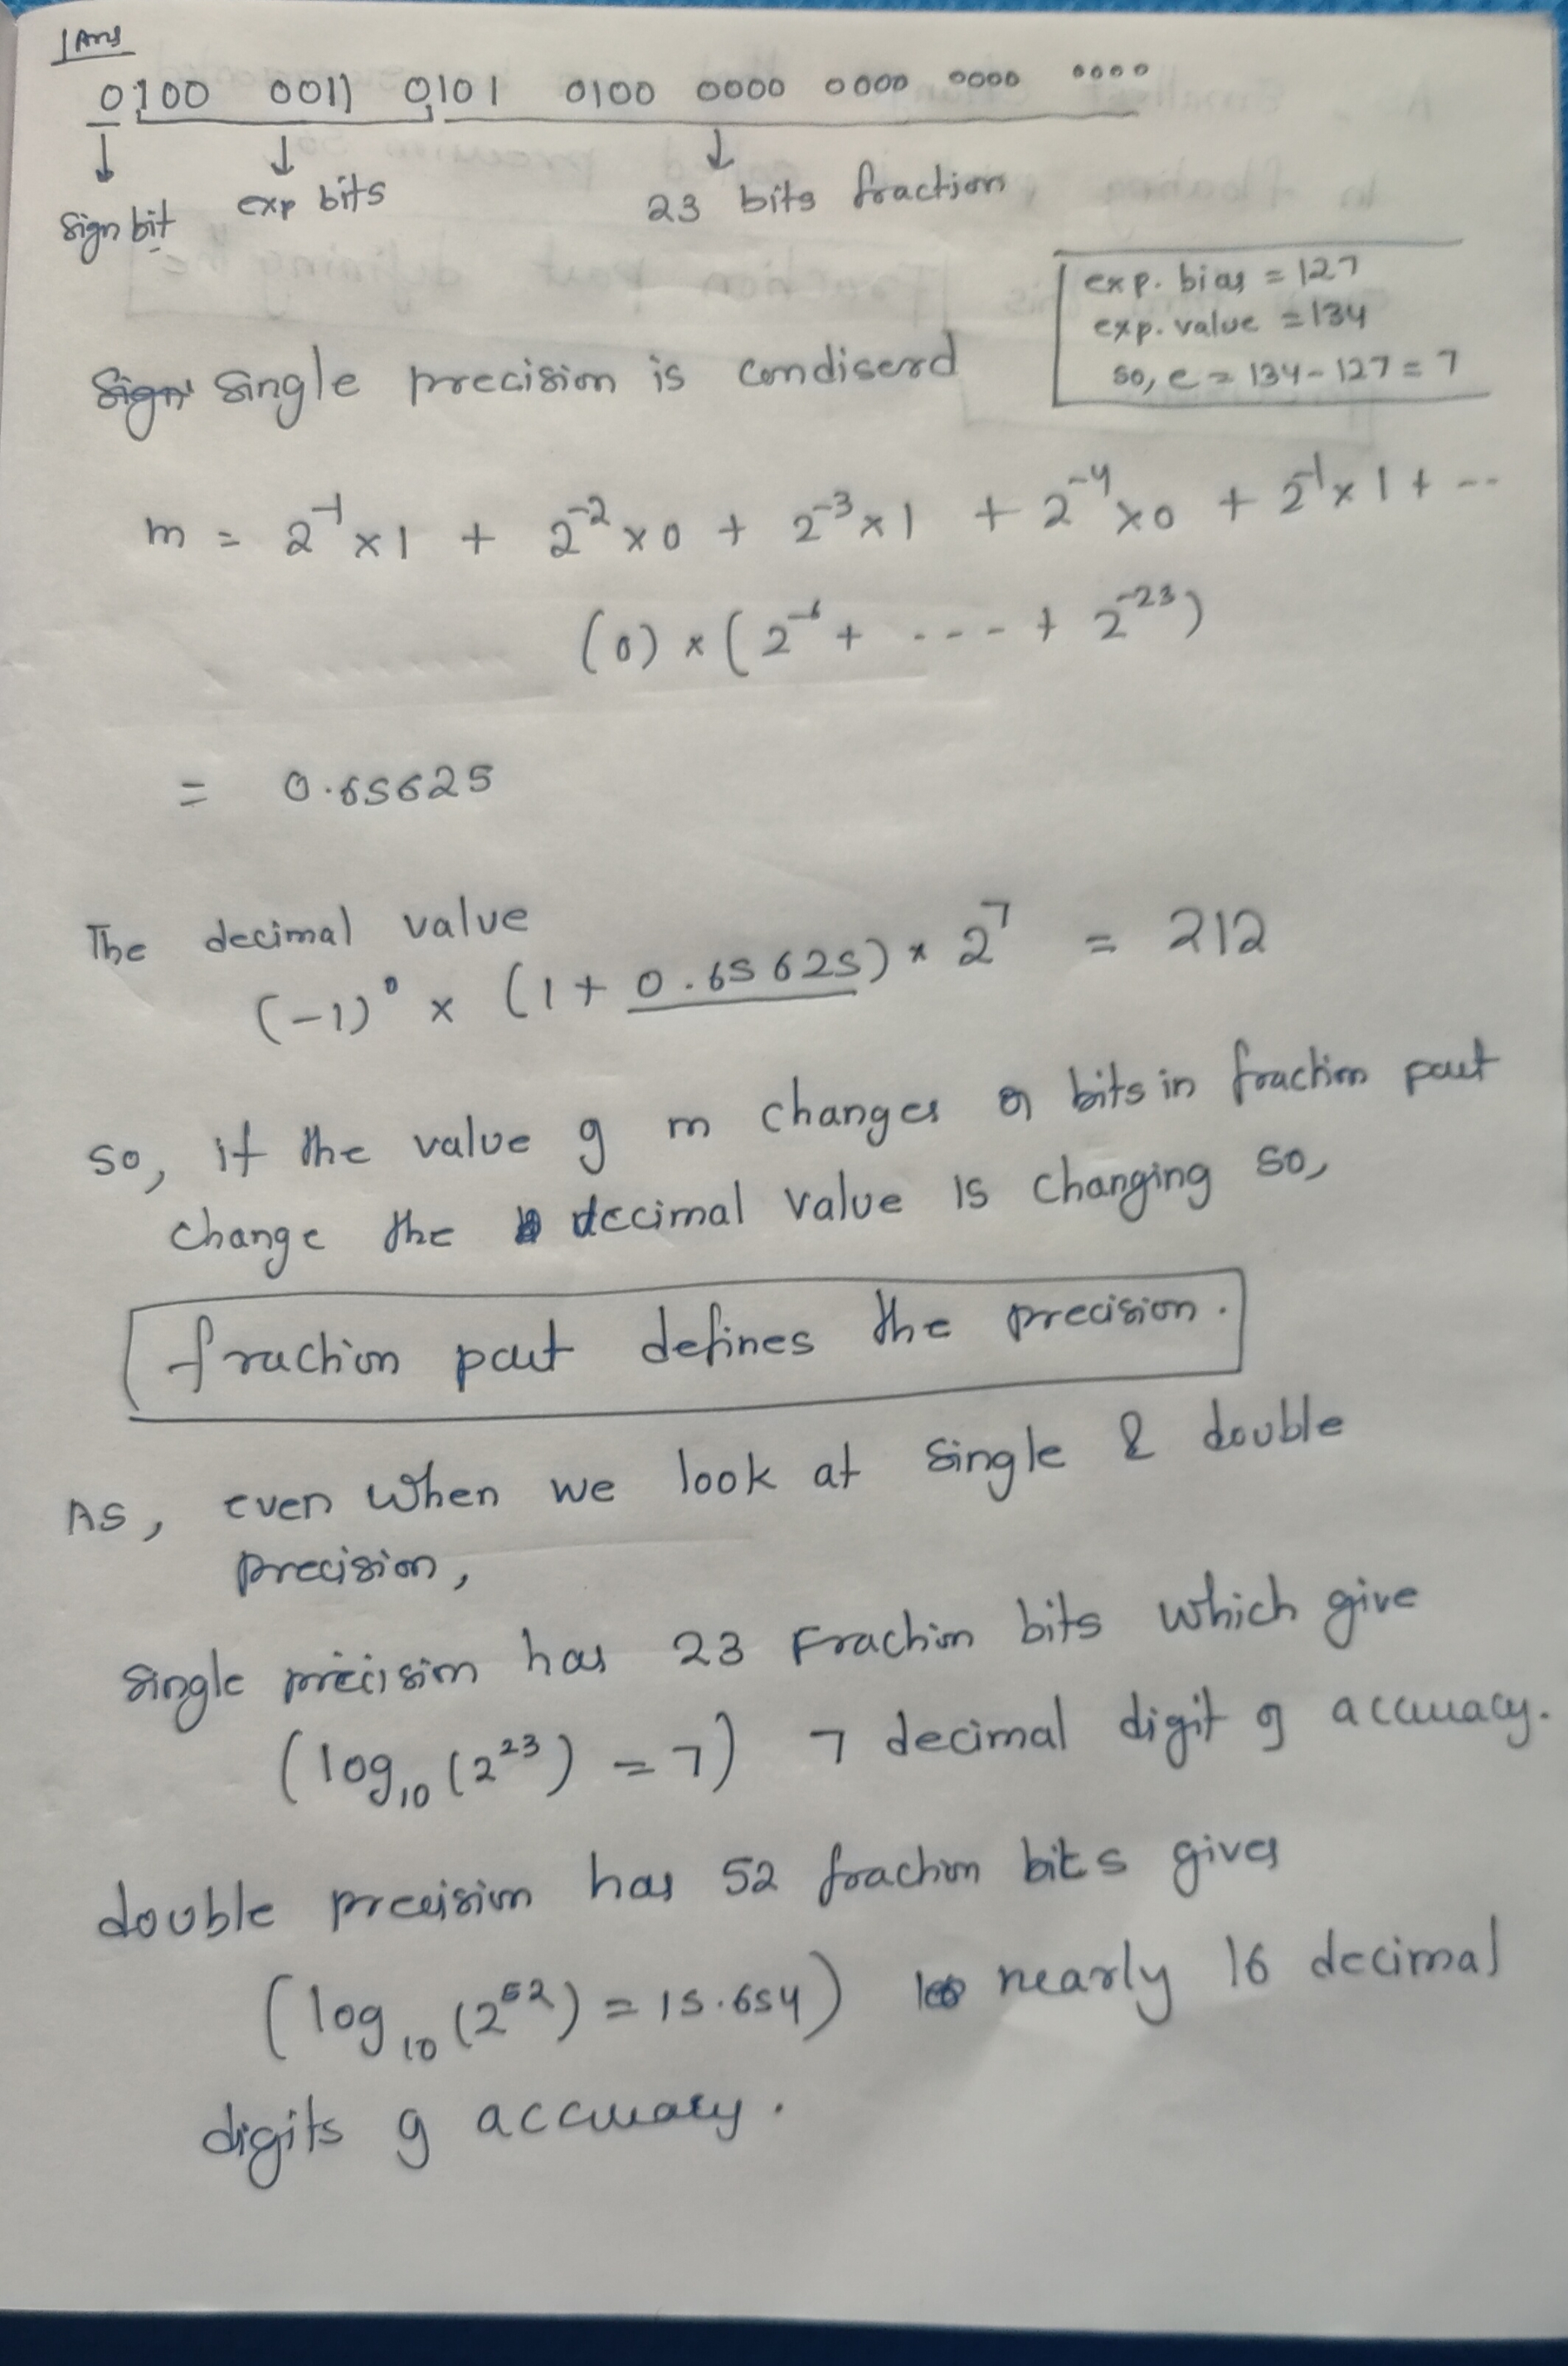 1Ans
0100 0011 0101 0100 0000 0000 0000 0000
sign bit exp bits 23 bits fraction
exp. bias = 127
exp. value = 134
so, e = 134-127 = 7
Single precision is condiserd
m = 2⁻¹×1 + 2⁻²×0 + 2⁻³×1 + 2⁻⁴×0 + 2⁻¹×1 + --
(0) × (2⁻⁶ + ---- + 2⁻²³)
= 0.65625
The decimal value
(-1)⁰ × (1 + 0.65625) * 2⁷ = 212
so, if the value of m changes or bits in fraction part
change the decimal value is changing so,
fraction part defines the precision.
As, even when we look at single & double
precision,
single precision has 23 Fraction bits which give
(log₁₀(2²³) = 7) 7 decimal digit of accuracy.
double precision has 52 fraction bits gives
(log₁₀(2⁵²) = 15.654) nearly 16 decimal
digits of accuracy.